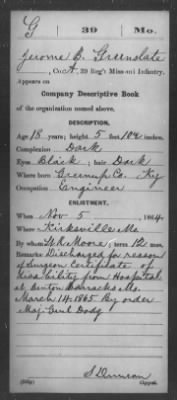 G 39 Mo.
Jerome B. Greenslate
, Co. A, 39 Reg't Missouri Infantry.
Appears on
Company Descriptive Book
of the organization named above.
DESCRIPTION.
Age 18 years; height 5 feet 10½ inches.
Complexion Dark
Eyes Black; hair Dark
Where born Greenup Co. Ky
Occupation Engineer
ENLISTMENT.
When Nov 5, 1864.
Where Kirksville Mo
By whom W.R. Moore; term 12 mos.
Remarks: Discharged for reason
of Surgeon Certificate of
Disability from Hospital
at Benton Barracks Mo.
March 14. 1865 By order
Maj. Genl Dodg
Copyist.